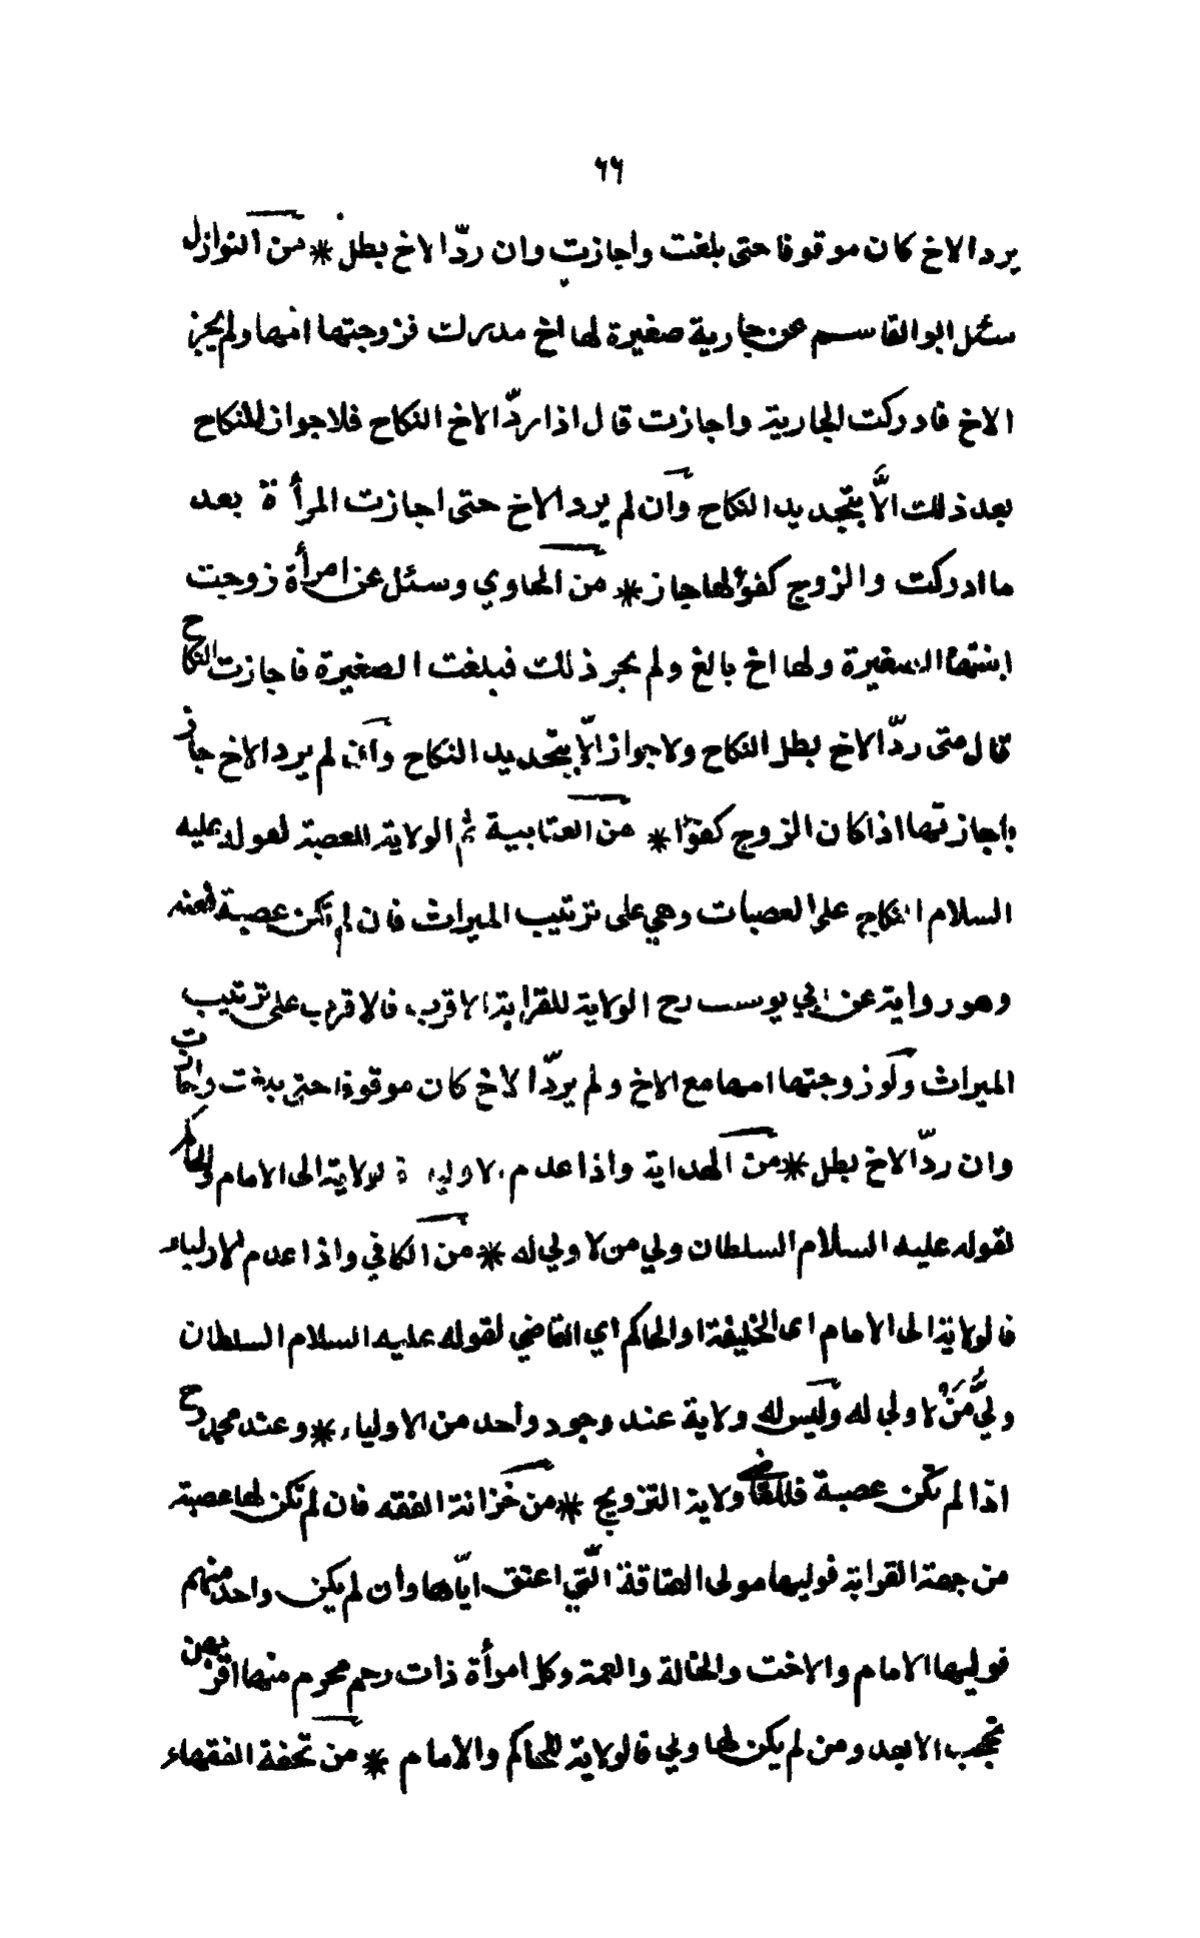 ٦٦
يرد الاخ كان موقوفا حتى بلغت واجازت وان ردّ الاخ بطل * من النوازل
سئل ابو القاسم عن جارية صغيرة لها اخ مدرك فزوجتها امها ولم يجز
الاخ فادركت الجارية واجازت قال اذا ردّ الاخ النكاح فلا جواز للنكاح
بعد ذلك الّا بتجديد النكاح وان لم يرد الاخ حتى اجازت المرأة بعد
ما ادركت والزوج كفؤ لها جاز * من الحاوي وسئل عن امرأة زوجت
ابنتها الصغيرة ولها اخ بالغ ولم يجز ذلك فبلغت الصغيرة فاجازت النكاح
قال متى ردّ الاخ بطل النكاح ولا جواز الّا بتجديد النكاح وان لم يرد الاخ جاز
باجازتها اذا كان الزوج كفؤا * من العتابية ثم الولاية للعصبة لقوله عليه
السلام النكاح على العصبات وهي على ترتيب الميراث فان لم تكن عصبة فعنه
وهو رواية عن ابي يوسف رح الولاية للقرابة الاقرب فالاقرب على ترتيب
الميراث ولو زوجتها امها مع الاخ ولم يردّ الاخ كان موقوفا حتى بلغت واجازت
وان ردّ الاخ بطل * من الهداية واذا عدم الاولياء فالولاية الى الامام والحاكم
لقوله عليه السلام السلطان ولي من لا ولي له * من الكافي واذا عدم الاولياء
فالولاية الى الامام اى الخليفة او الحاكم اي القاضي لقوله عليه السلام السلطان
وليُّ مَنْ لا ولي له وليس له ولاية عند وجود واحد من الاولياء * وعند محمد رح
اذا لم تكن عصبة فللقاضي ولاية التزويج * من خزانة الفقه فان لم تكن لها عصبة
من جهة القرابة فوليها مولى العتاقة الّتي اعتق ايّاها وان لم يكن واحد منهم
فوليها الامام والاخت والخالة والعمة وكل امرأة ذات رحم محرم منها اقربهن
تحجب الابعد ومن لم يكن لها ولي فالولاية للحاكم والامام * من تحفة الفقهاء